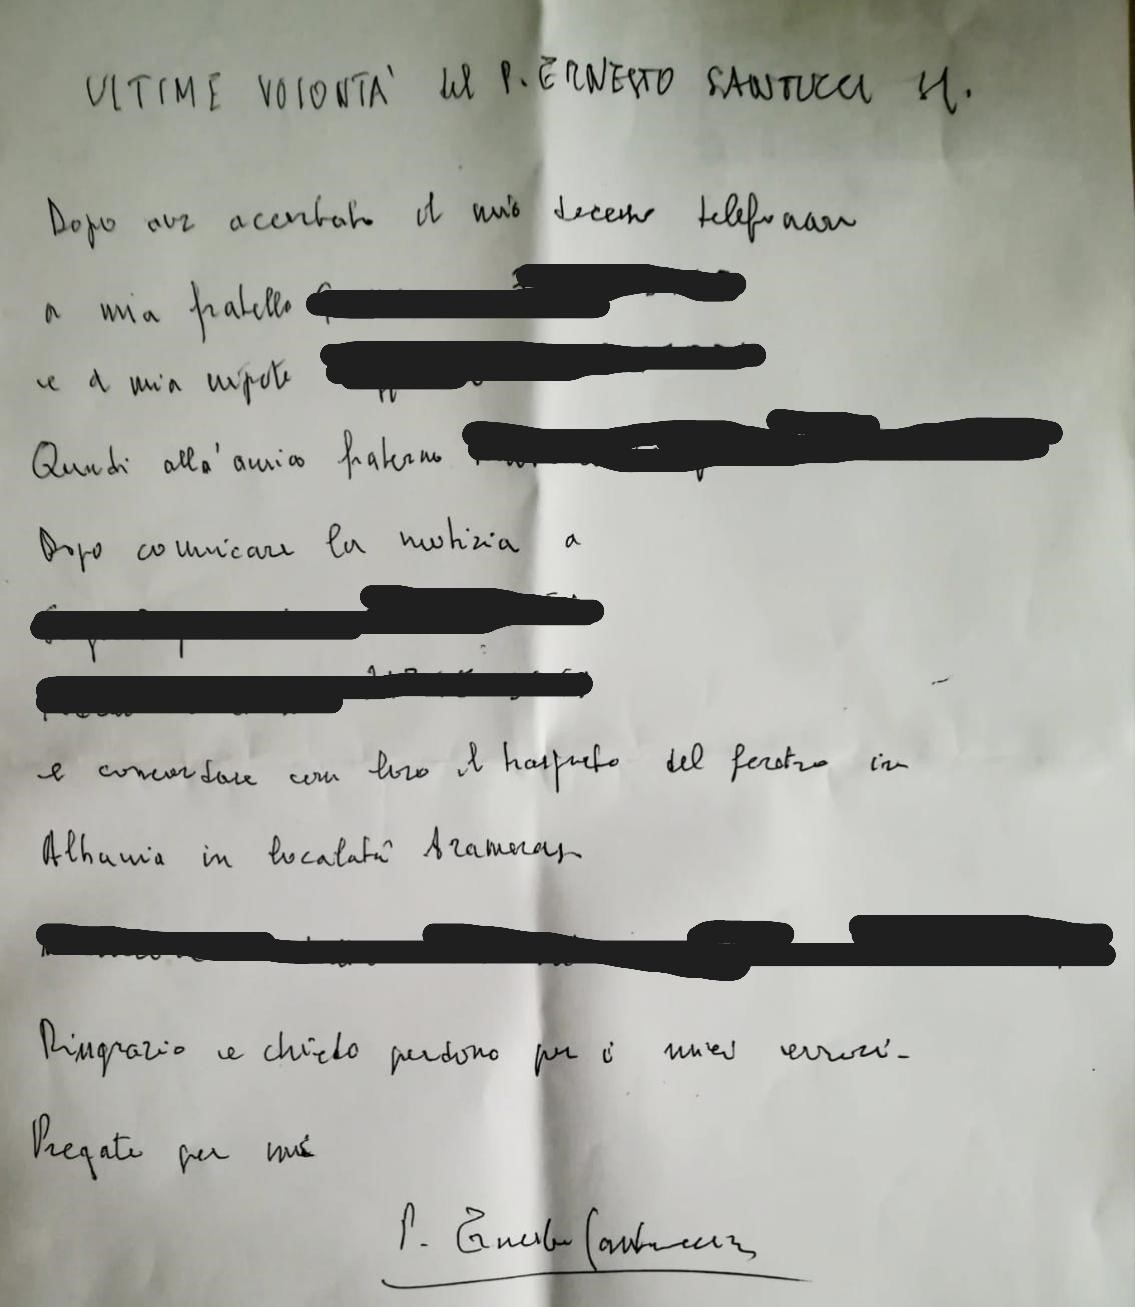 ULTIME VOLONTÀ del P. ERNESTO SANTUCCI SJ.
Dopo aver accertato il mio decesso telefonare
a mia fratello
e a mia nipote
Quindi alla' amico fraterno
Dopo comunicare la notizia a
e concordare con loro il trasporto del feretro in
Albania in localatà
Ringrazio e chiedo perdono per i miei errori-
Pregate per me
P. Ernesto Santucci